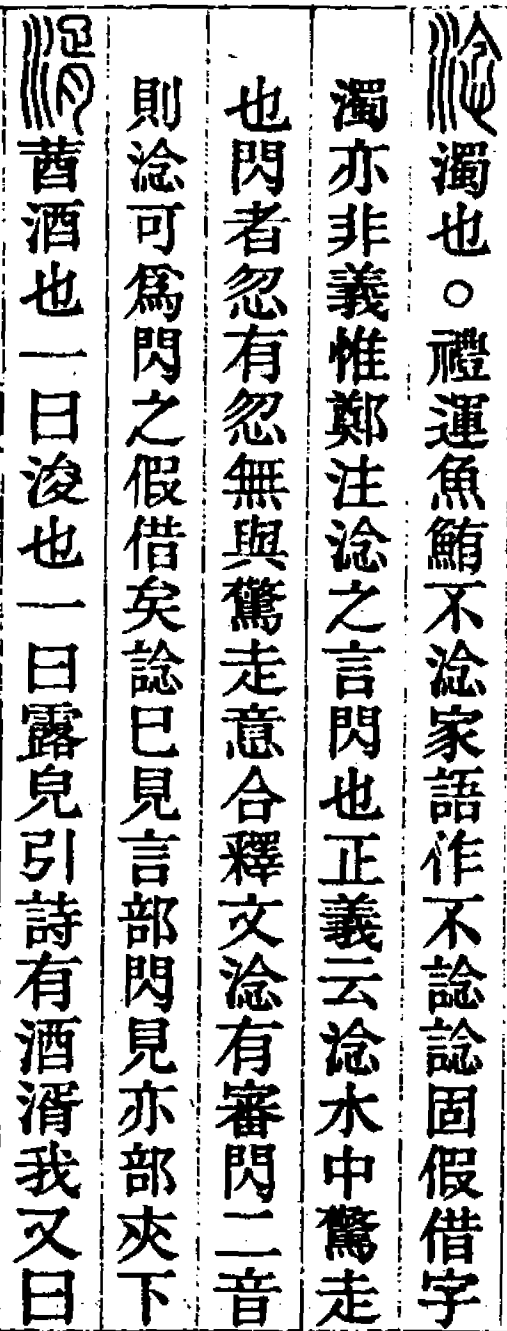 淰濁也○禮運魚鮪不淰家語作不諗諗固假借字
濁亦非義惟鄭注淰之言閃也正義云淰水中驚走
也閃者忽有忽無與驚走意合釋文淰有審閃二音
則淰可爲閃之假借矣諗巳見言部閃見亦部夾下
湑莤酒也一曰浚也一曰露皃引詩有酒湑我又曰